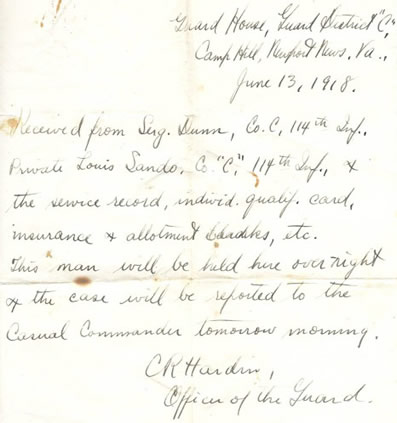 Guard House, Guard District "C,"
Camp Hill, Newport News, Va.,
June 13, 1918.
Received from Serg. Dunn, Co. C, 114th Inf.,
Private Louis Sando, Co. "C," 114th Inf., &
the service record, individ. qualif. card,
insurance & allotment, etc.
This man will be held here over night
& the case will be reported to the
Casual Commander tomorrow morning.
CR Hardin,
Officer of the Guard.